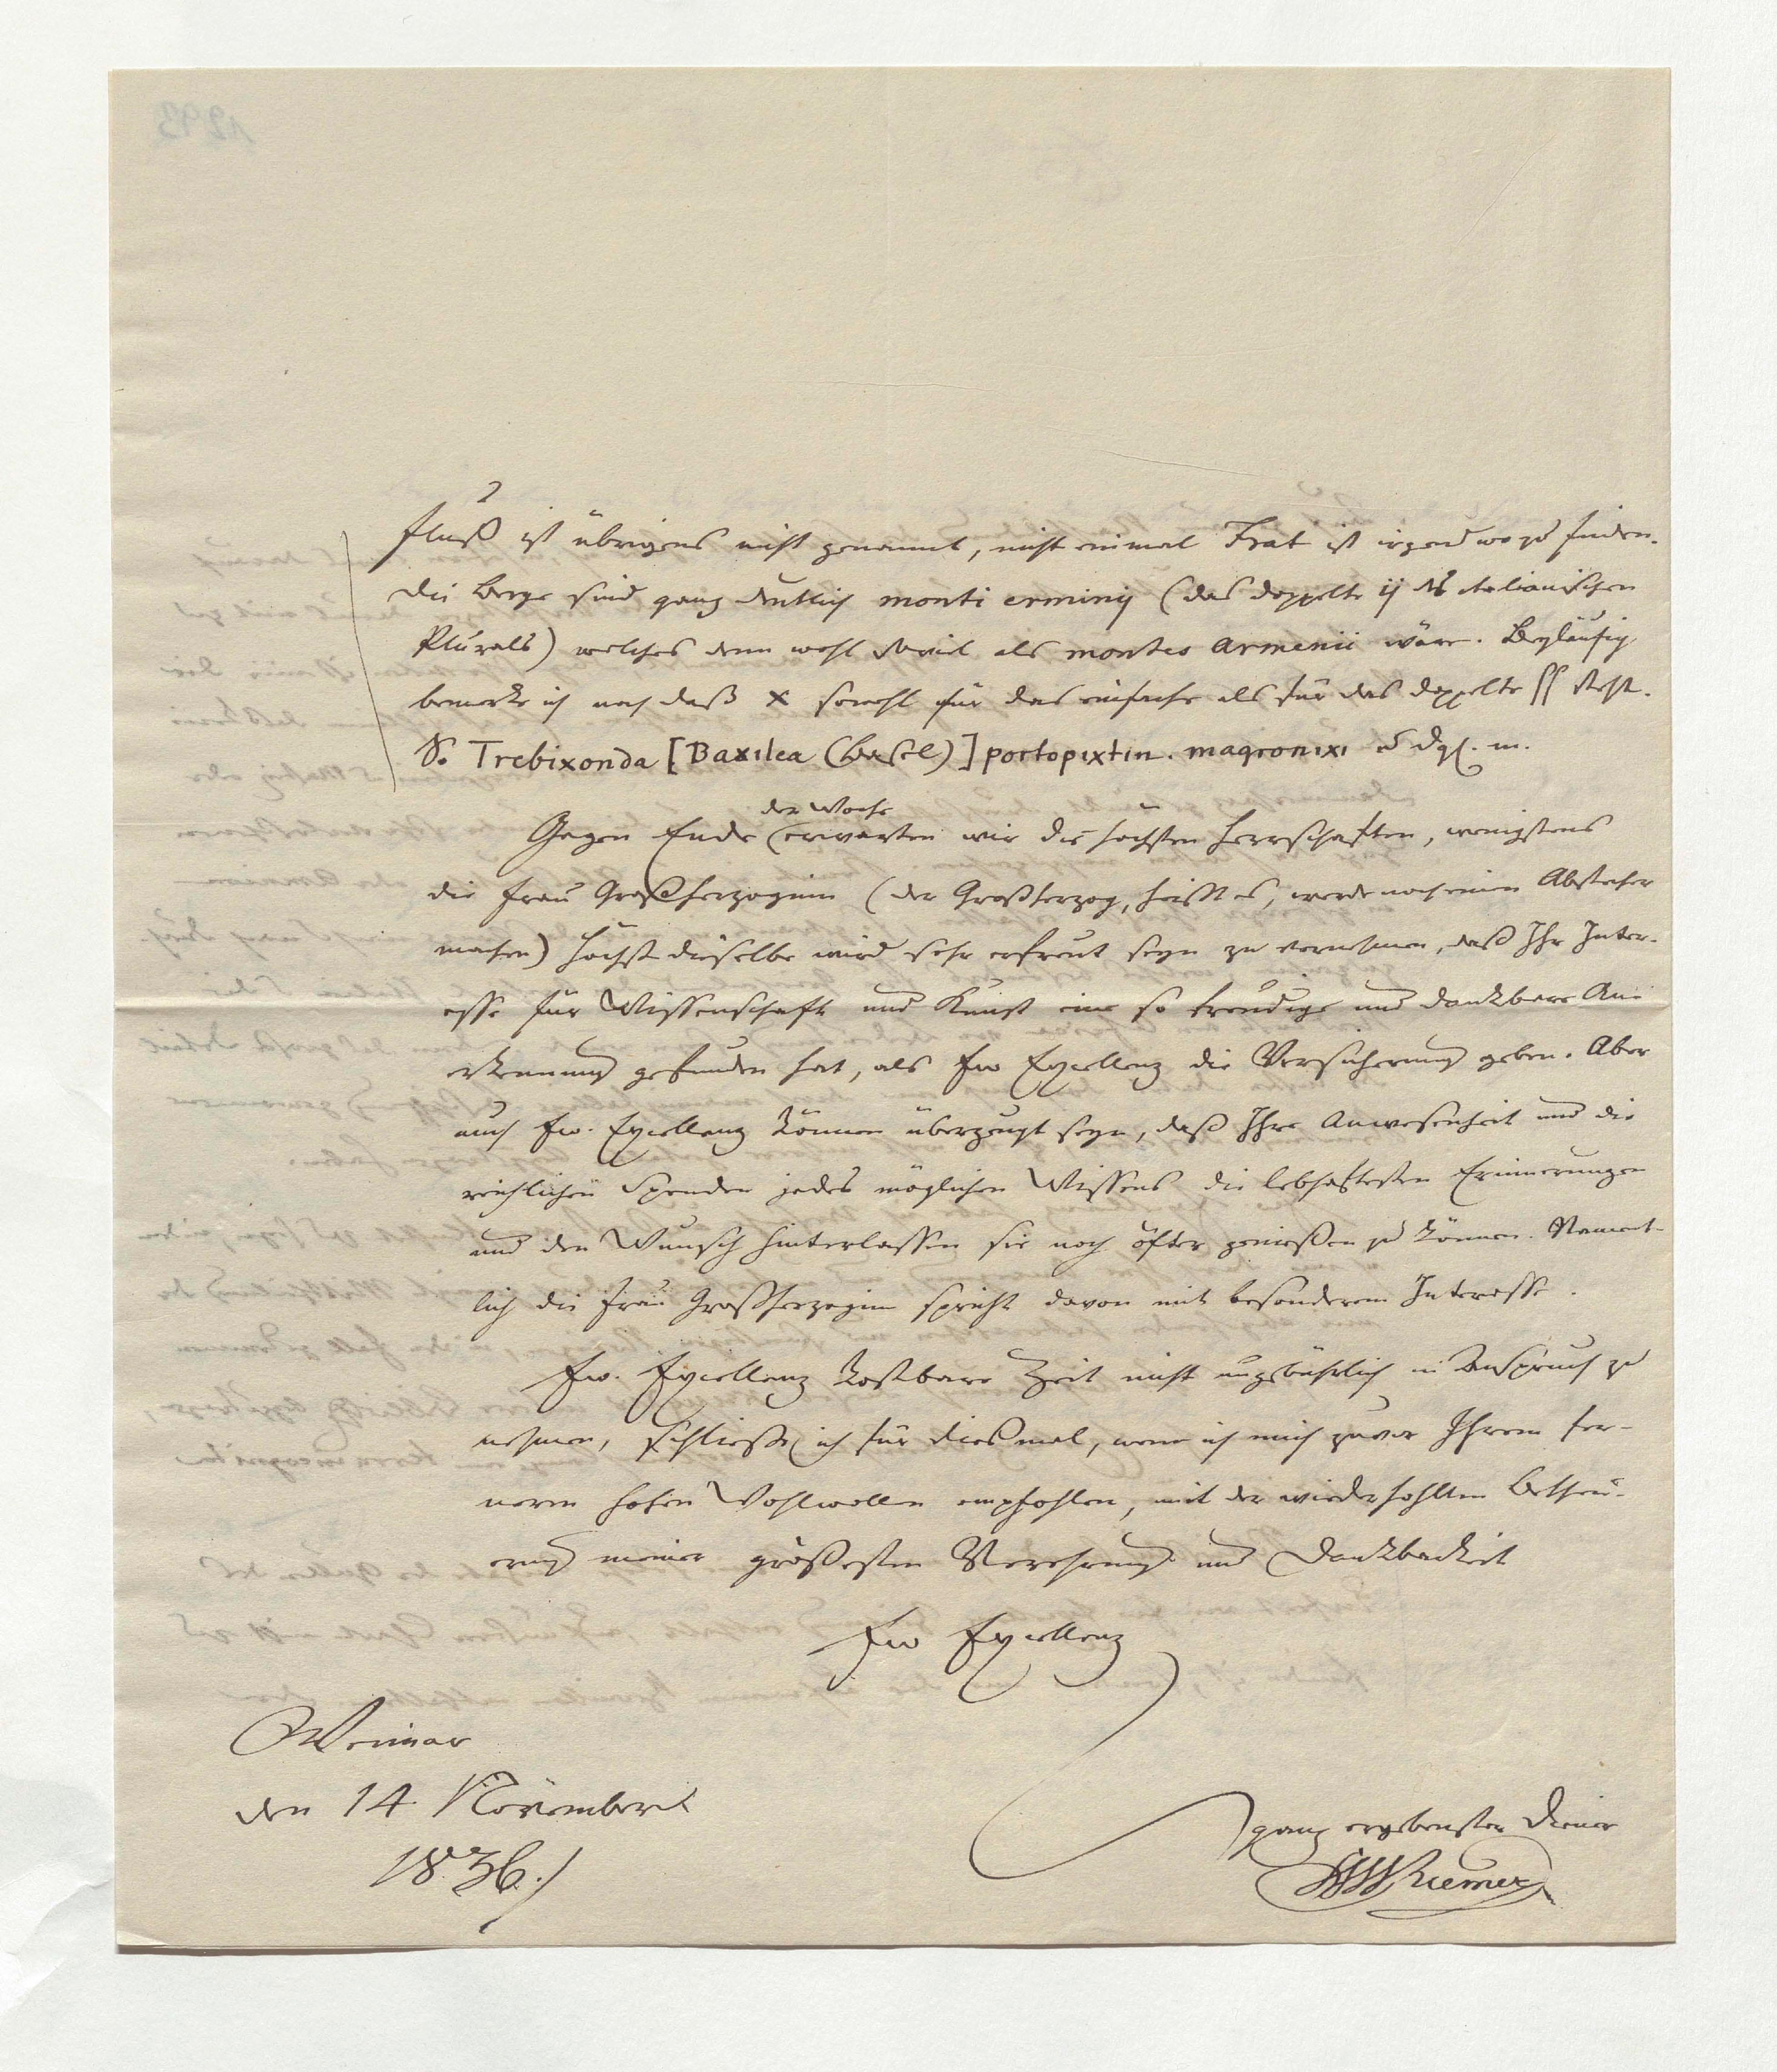 Fluß ist übrigens nicht genannt, nicht einmal Frat ist irgend wo zu finden.
die Berge sind ganz deutlich monti erminij (das doppelte ij des italianischen
Plurals) welches denn wohl soviel als montes Armenii wäre. Beyläufig
bemerke ich noch daß x sowohl für das einfache als für das doppelte ſſ steht.
So Trebixonda [Baxilea (Basel)] portopixtin. magronixi u dgl. m.
der Woche
Gegen Ende erwarten wir die höchsten Herrschaften, wenigstens
die Frau Großherzoginn (der Großherzog, heißt es, werde noch einen Abstecher
machen) Höchst dieselbe wird sehr erfreut seyn zu vernehmen, daß Ihr Inter-
esse für Wissenschaft und Kunst eine so freudige und dankbare An-
erkennung gefunden hat, als Ew Excellenz die Versicherung geben. Aber
auch Ew. Excellenz können überzeugt seyn, daß Ihre Anwesenheit und die
reichlichen Spenden jedes möglichen Wissens die lebhaftesten Erinnerungen
und den Wunsch hinterlassen sie noch öfter genießen zu können. Nament-
lich die Frau Großherzogin spricht davon mit besonderem Interesse.
Ew. Excellenz kostbare Zeit nicht ungebührlich in Anspruch zu
nehmen, schließe ich für diesmal, wenn ich mich zuvor Ihrem fer-
neren hohen Wohlwollen empfohlen, mit der wiederholten Betheu-
erung meiner größesten Verehrung und Dankbarkeit
Ew Excellenz
Weimar
den 14. November
1836.
ganz ergebenster Diener
FWRiemer